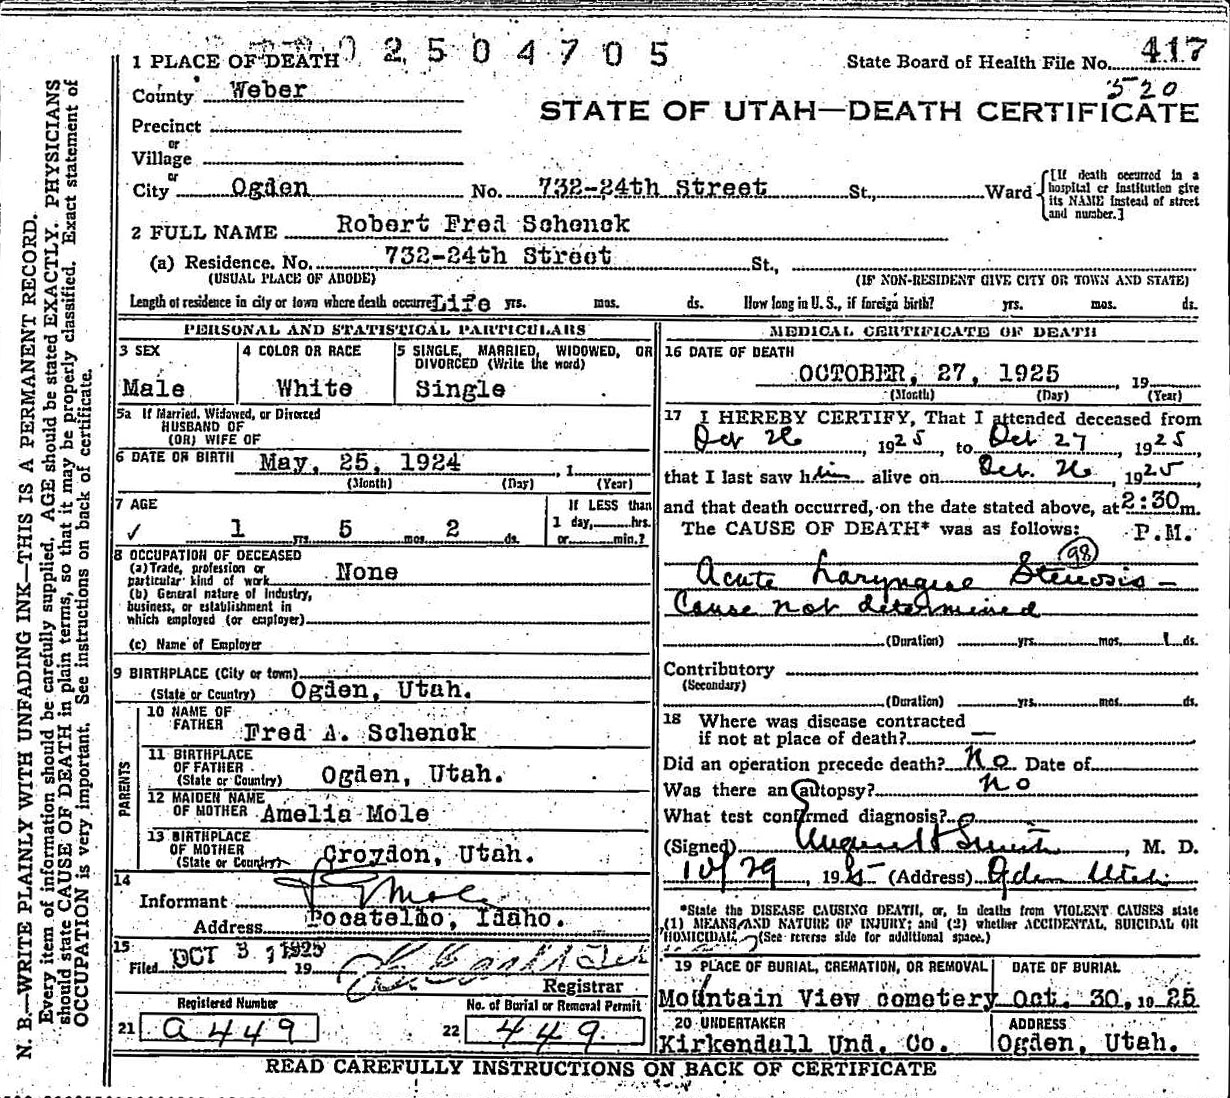 2504705
1 PLACE OF DEATH
State Board of Health File No. 417
County Weber
520
STATE OF UTAH—DEATH CERTIFICATE
Precinct
or
Village
or
City Ogden No. 732-24th Street St., Ward
[If death occurred in a hospital or institution give its NAME instead of street and number.]
2 FULL NAME Robert Fred Schenck
(a) Residence. No. 732-24th Street St.,
(USUAL PLACE OF ABODE) (IF NON-RESIDENT GIVE CITY OR TOWN AND STATE)
Length of residence in city or town where death occurred Life yrs. mos. ds. How long in U. S., if foreign birth? yrs. mos. ds.
PERSONAL AND STATISTICAL PARTICULARS
3 SEX
Male
4 COLOR OR RACE
White
5 SINGLE, MARRIED, WIDOWED, OR
DIVORCED (Write the word)
Single
5a If Married, Widowed, or Divorced
HUSBAND OF
(OR) WIFE OF
6 DATE OR BIRTH May, 25, 1924, 1
(Month) (Day) (Year)
7 AGE
✓ 1 yrs. 5 mos. 2 ds.
If LESS than
1 day, hrs.
or min.?
8 OCCUPATION OF DECEASED
(a) Trade, profession or
particular kind of work None
(b) General nature of Industry,
business, or establishment in
which employed (or employer)
(c) Name of Employer
9 BIRTHPLACE (City or town)
(State or Country) Ogden, Utah.
PARENTS
10 NAME OF
FATHER Fred A. Schenck
11 BIRTHPLACE
OF FATHER
(State or Country) Ogden, Utah.
12 MAIDEN NAME
OF MOTHER Amelia Mole
13 BIRTHPLACE
OF MOTHER
(State or Country) Croydon, Utah.
14
Informant Mole
Address Pocatello, Idaho.
15
Filed OCT 3 1 1925 19
Registrar
Registered Number
21 a449
No. of Burial or Removal Permit
22 449.
MEDICAL CERTIFICATE OF DEATH
16 DATE OF DEATH
OCTOBER, 27, 1925, 19
(Month) (Day) (Year)
17 I HEREBY CERTIFY, That I attended deceased from
Oct 26, 1925, to Oct 27, 1925,
that I last saw him alive on Oct. 26, 1925,
and that death occurred, on the date stated above, at 2:30 m.
The CAUSE OF DEATH* was as follows: P.M.
98
Acute Laryngeal Stenosis —
Cause not determined
(Duration) yrs. mos. 1 ds.
Contributory
(Secondary)
(Duration) yrs. mos. ds.
18 Where was disease contracted
if not at place of death? —
Did an operation precede death? No Date of
Was there an autopsy? no
What test confirmed diagnosis?
(Signed) Smith, M. D.
10/29, 1925 (Address) Ogden Utah
*State the DISEASE CAUSING DEATH, or, in deaths from VIOLENT CAUSES state
(1) MEANS AND NATURE OF INJURY; and (2) whether ACCIDENTAL, SUICIDAL OR
HOMICIDAL. (See reverse side for additional space.)
19 PLACE OF BURIAL, CREMATION, OR REMOVAL
Mountain View cemetery
DATE OF BURIAL
Oct. 30, 1925
20 UNDERTAKER
Kirkendall Und. Co.
ADDRESS
Ogden, Utah.
READ CAREFULLY INSTRUCTIONS ON BACK OF CERTIFICATE
N. B.—WRITE PLAINLY WITH UNFADING INK—THIS IS A PERMANENT RECORD.
Every item of information should be carefully supplied. AGE should be stated EXACTLY. PHYSICIANS
should state CAUSE OF DEATH in plain terms, so that it may be properly classified. Exact statement of
OCCUPATION is very important. See instructions on back of certificate.